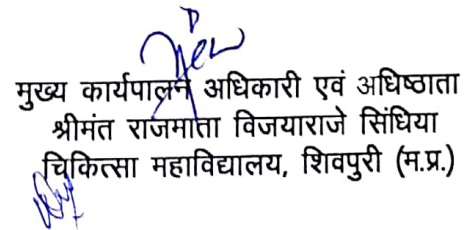 मुख्य कार्यपालन अधिकारी एवं अधिष्ठाता
श्रीमंत राजमाता विजयाराजे सिंधिया
चिकित्सा महाविद्यालय, शिवपुरी (म.प्र.)